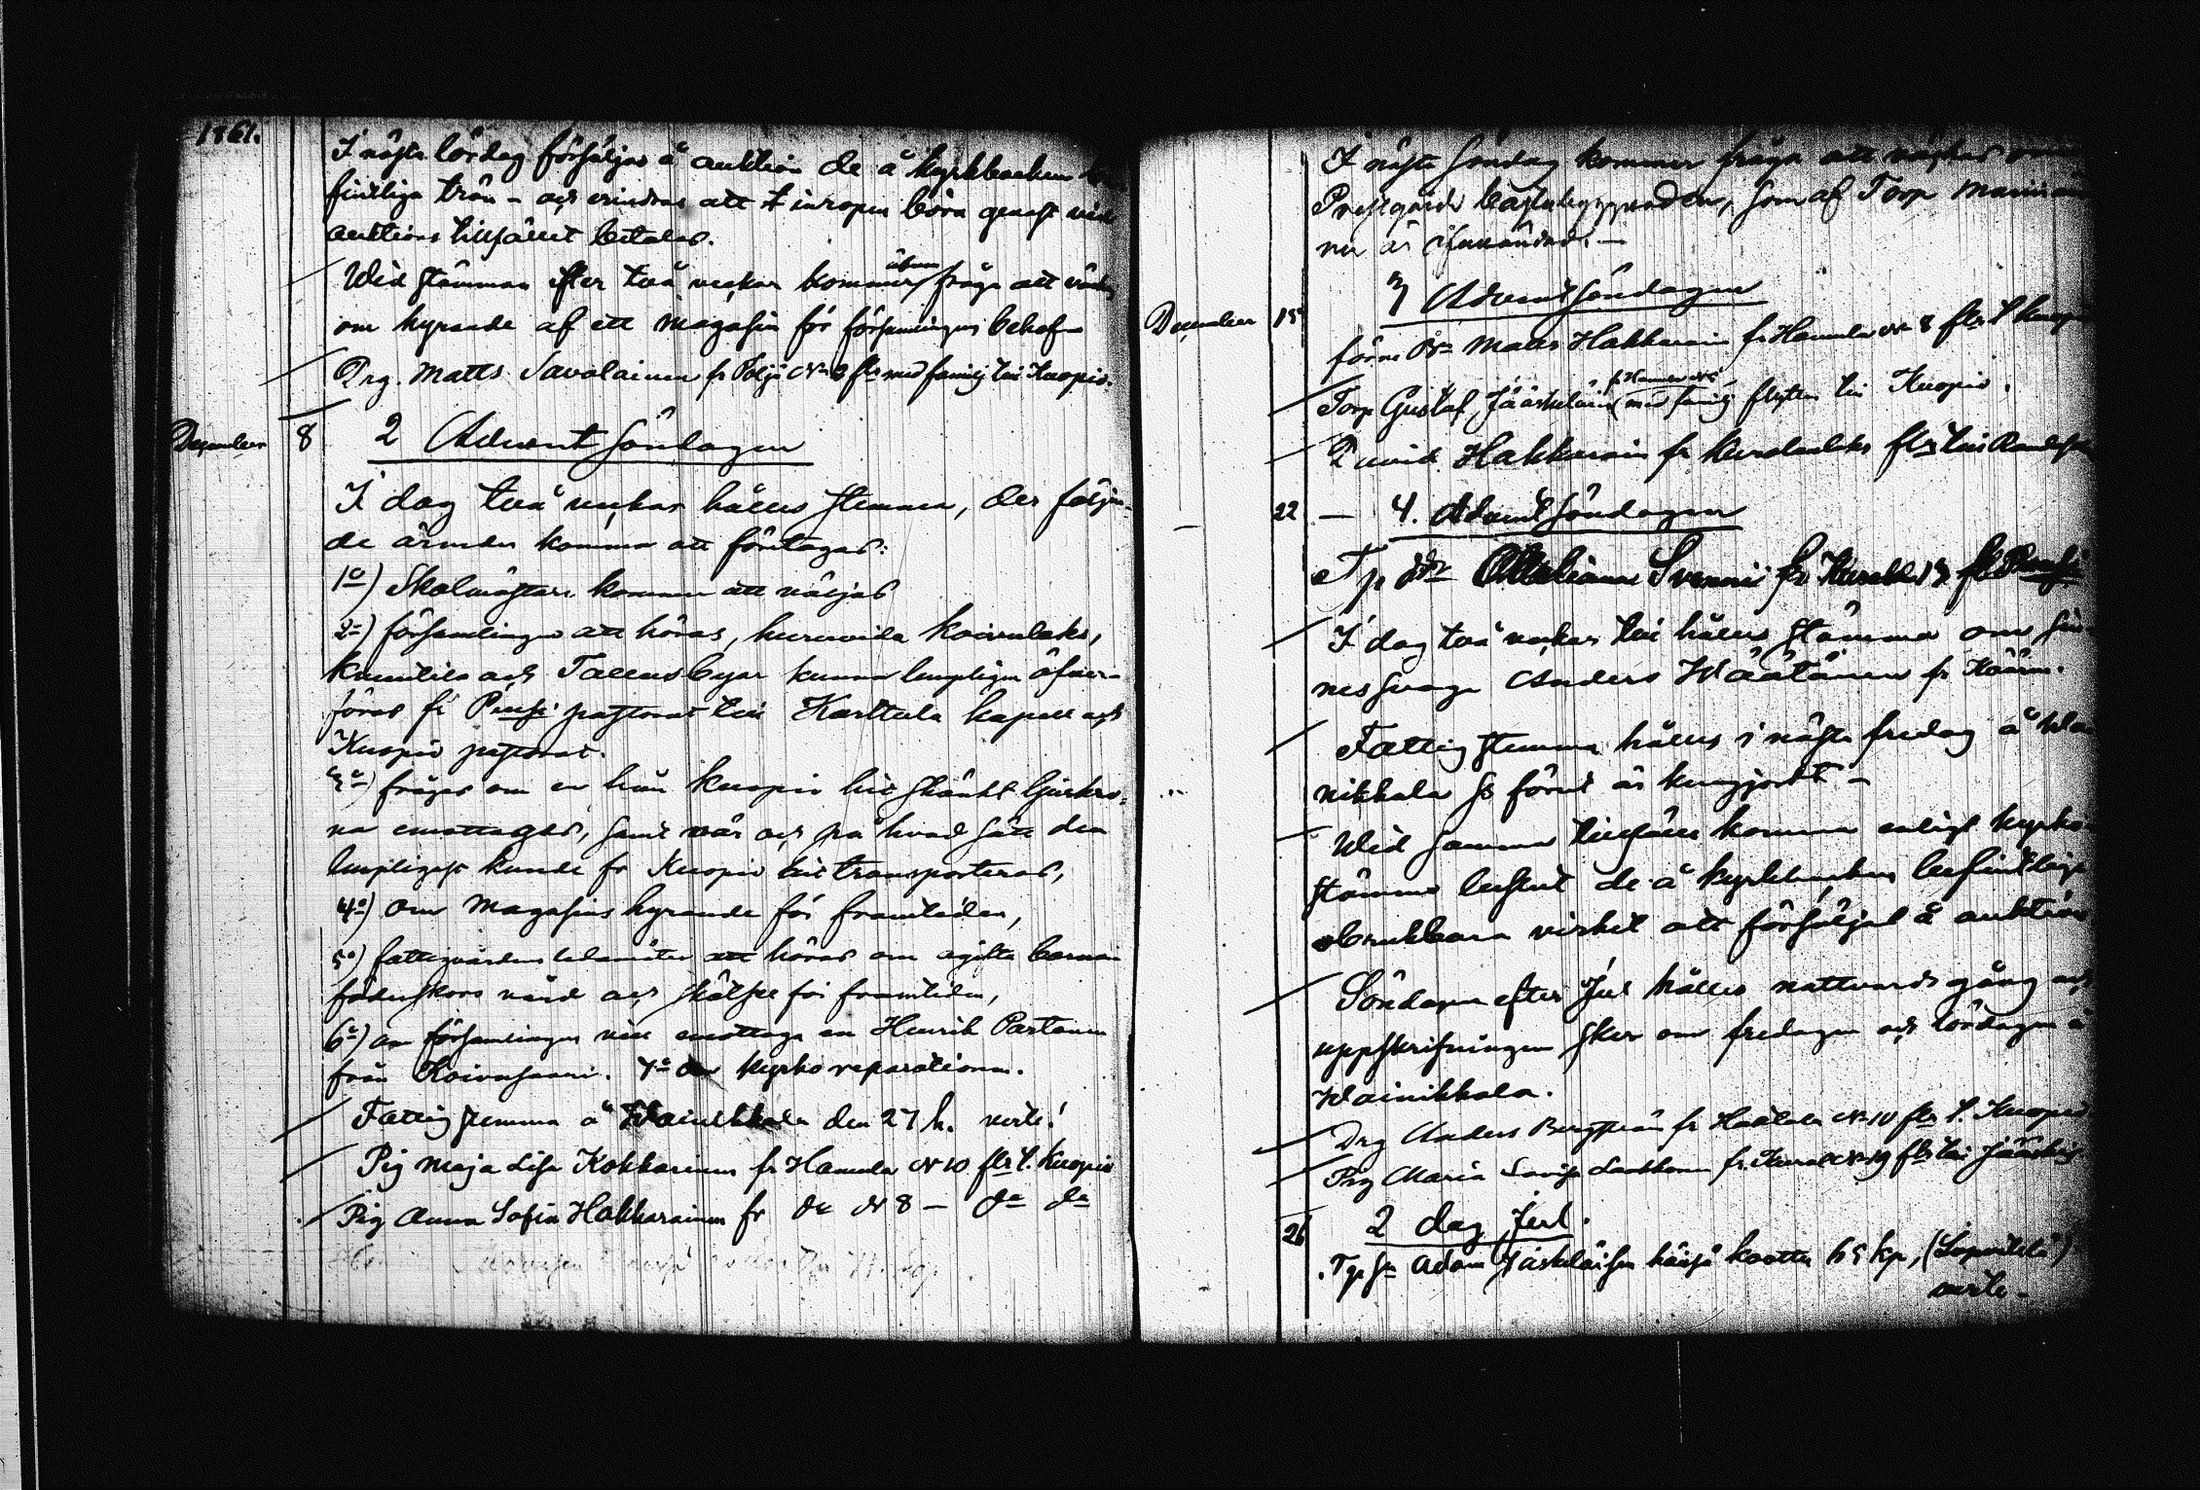 1861.
I nästa lördag försäljas å auktion de å kyrkbacken
fintliga trän – och erindras att inropen böra genast vid
auktions tillfället betalas.
Wid stämman efter två veckor kommer äfven fråga att väckas
om hyrande af ett magasin för församlingens behof
Drg. Matts Savolainen fr Pöljä N 3 fltr med familj till Kuopio.
December 8 2 Advent Söndagen
I dag två veckor hålles stemma, der följan-
de ärender komma att företagas:
1o) Skolmästare kommer att väljas
2o) församlingen att höras, huruvida Koivulaks,
och Tallus byar kunna lämpligen öfver-
föras fr pastorat till Karttula kapell och
Kuopio pastorat.
3o) fråges om en från Kuopio hit skänkt ljuskro-
na emottages, samt när och på hvad sätt den
lämpligast kunde fr Kuopio hit transporteras,
4o) om Magasins hyrande för framtiden,
5o) fattigvårdens ledamöter att höras om ogifta barna
föderskors vård och skötsel för framtiden,
6o) om församlingen vill emottaga en Henrik Partanen
från Koivusaari. 7o Om kyrko reparationen.
Fattig stemma å Wainikkala den 27 h. verte!
Pig Maja Lisa Kokkarinen fr Hamula N 10 fltr t. Kuopio
Pig Anna Sofia Hakkarainen fr do N 8 – do do
I nästa söndag kommer fråga att väckas om
Prestgårds byggnaden, som af Torp
ner är
December 15 3 Advent Söndagen
förre Matts Hakkarain fr Hamula N 8 fltr t Kuopio
Torp Gustaf Jääskeläin fr Hamula N 6 med familj flytta till Kuopio.
David Hakkarain fr fltr till
22 – 4. Advent Söndagen
Svensk fr
I dag två veckor till hålles stämma om
Anders Wäätäinen fr
Fattig stemma hålles i nästa fredag å Wai
nikkala som förut är kungjordt –
Wid samma tillfälle komma enligt kyrko-
stämmo beslut de å kyrkbacken befintliga
obrukbara virket att försäljas å auktion
Söndagen efter Jul hålles nattvardsgång och
uppskrifningen sker om fredagen och lördagen å
Wainikkala.
Drg Anders fr N 10 fltr t. Kuopio
Pig Maria Lovisa fr N 19 fltr till
26 2 dag Jul.
Adam Jäskeläisen
verte –